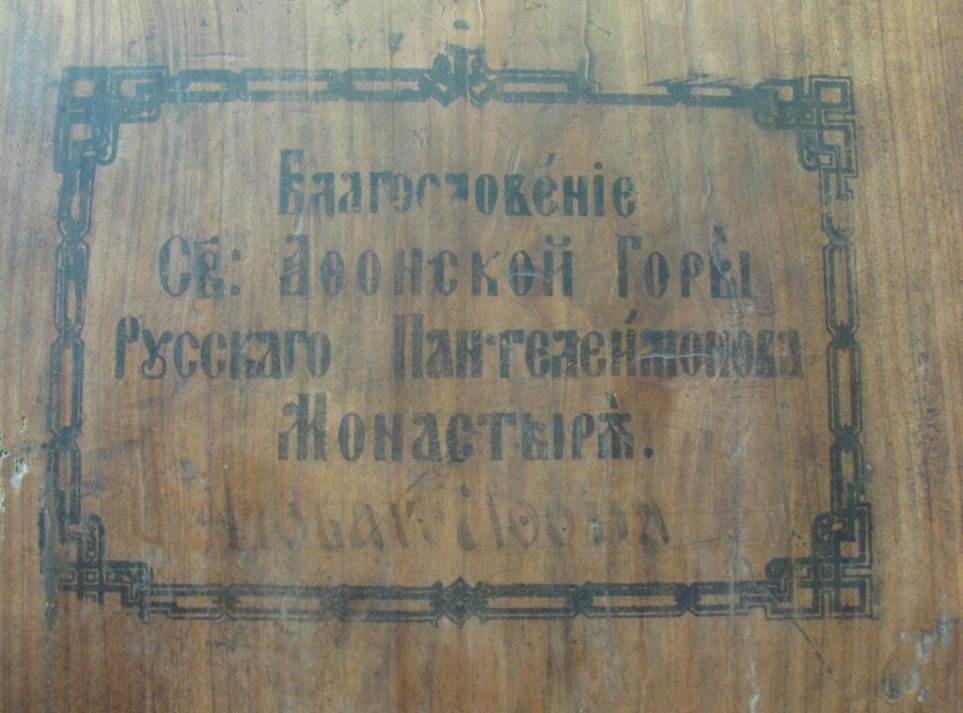 Благослове́нїе
Св: Аѳонской Горы̀
Рꙋсскаго Пантелеи́монова
Монастырѧ̀.